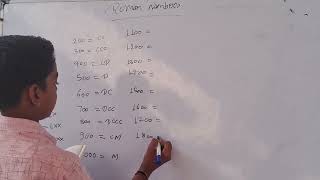 Roman numbers
200 = CC
300 = CCC
900 = CM
500 = D
600 = DC
700 = DCC
800 = DCCC
900 = CM
1000 = M
1100 =
1200 =
1500 =
1600 =
1700 =
1800 =